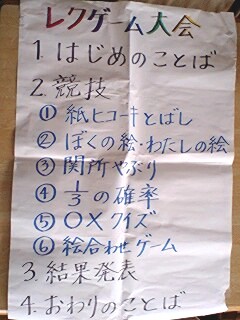 レクゲーム大会
1. はじめのことば
2. 競技
① 紙ヒコーキとばし
② ぼくの絵・わたしの絵
③ 関所やぶり
④ 1/3の確率
⑤ ○×クイズ
⑥ 絵合わせゲーム
3. 結果発表
4. おわりのことば